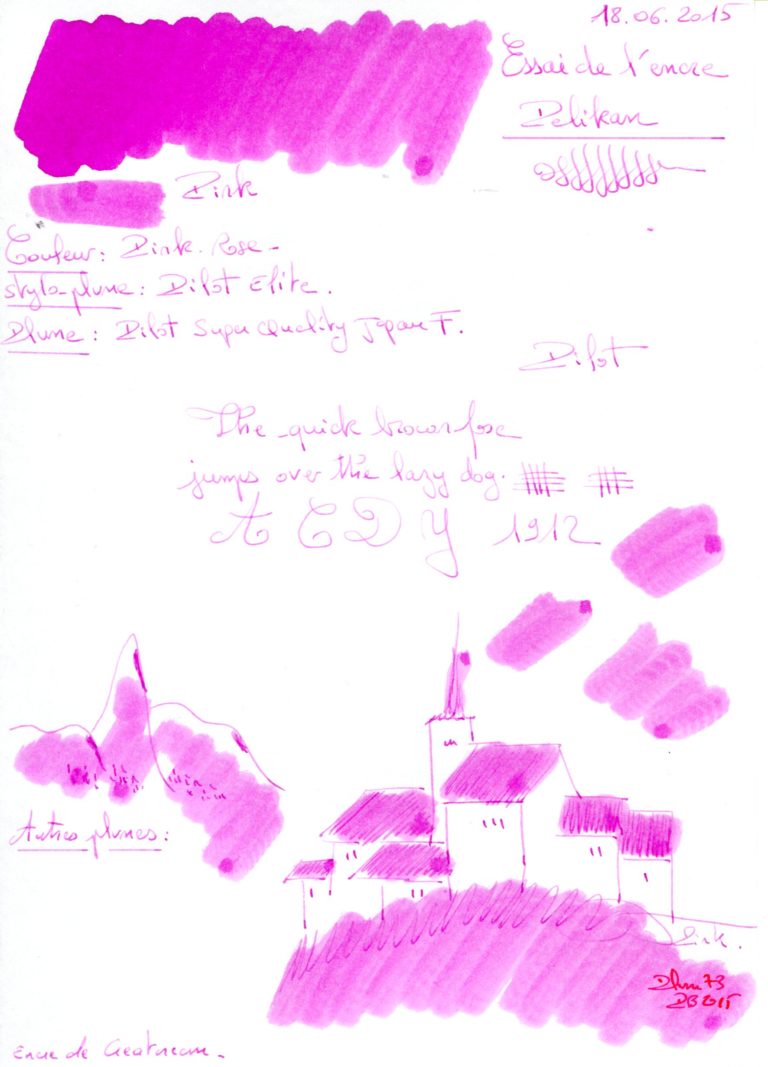 18.06.2015
Essai de l'encre
Pelikan
Pink
Couleur: Pink. Rose -
Stylo-plume: Pilot Elite.
Plume: Pilot Super Quality Japan F.
Pilot
The quick brown fox
jumps over the lazy dog.
A C D Y 1912
Autres plumes:
Pink.
Plum 73
DB 2015
Encre de